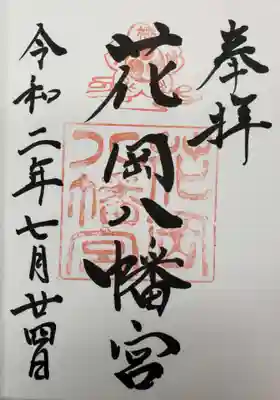 奉拝
花岡八幡宮
花岡八幡宮
令和二年七月廿四日